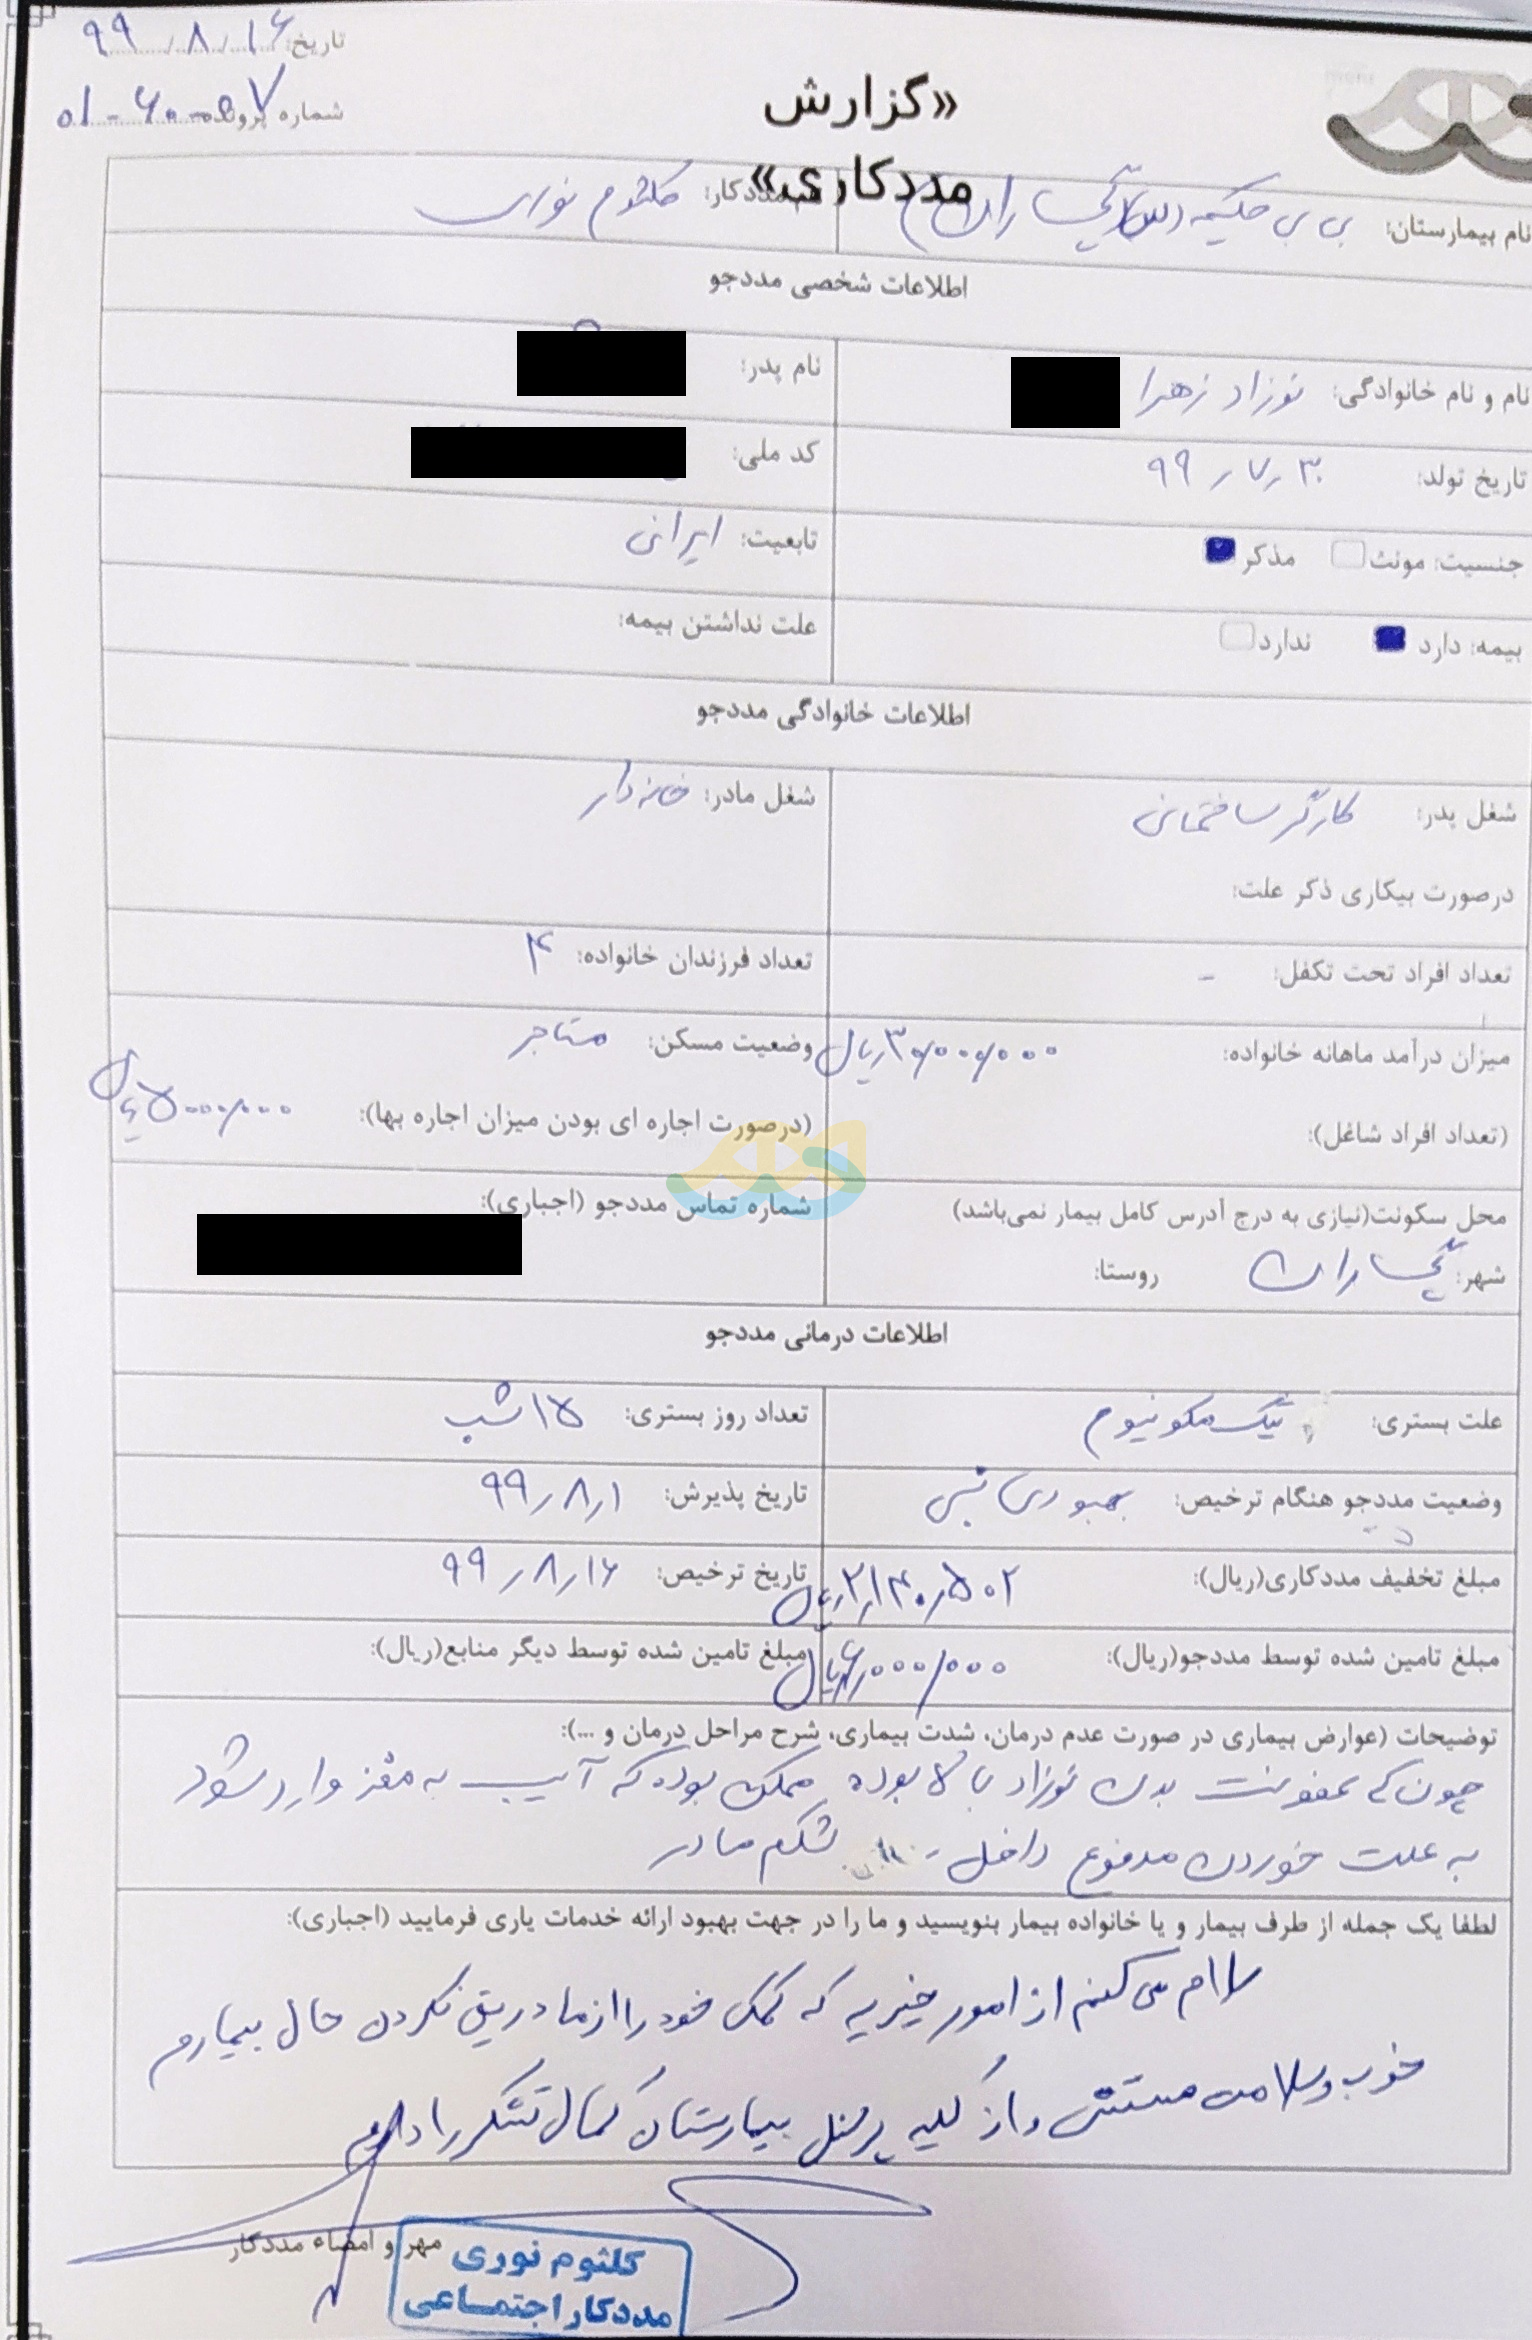 تاریخ: ۹۹/۸/۱۶
شماره پرونده: ۰۱-۶۰-۰۵۷
«گزارش
مددکاری»
نام بیمارستان: بی بی حکیمه (س) گچساران
نام مددکار: کلثوم نوری
اطلاعات شخصی مددجو
نام و نام خانوادگی: نوزاد زهرا
نام پدر:
تاریخ تولد: ۹۹/۷/۳۰
کد ملی:
جنسیت: مونث مذکر
تابعیت: ایرانی
بیمه: دارد ندارد
علت نداشتن بیمه:
اطلاعات خانوادگی مددجو
شغل پدر: کارگر ساختمانی
شغل مادر: خانه دار
درصورت بیکاری ذکر علت:
تعداد افراد تحت تکفل: -
تعداد فرزندان خانواده: ۴
میزان درآمد ماهانه خانواده: ۳۰/۰۰۰/۰۰۰ ریال
وضعیت مسکن: مستاجر
(تعداد افراد شاغل):
(درصورت اجاره ای بودن میزان اجاره بها): ۵۰۰۰/۰۰۰ ریال
محل سکونت(نیازی به درج آدرس کامل بیمار نمی‌باشد)
شماره تماس مددجو (اجباری):
شهر: گچساران روستا:
اطلاعات درمانی مددجو
علت بستری: مکونیوم
تعداد روز بستری: ۱۵ شب
وضعیت مددجو هنگام ترخیص: بهبودی نسبی
تاریخ پذیرش: ۹۹/۸/۱
مبلغ تخفیف مددکاری(ریال): ۲/۱۴۰/۵۰۲ ریال
تاریخ ترخیص: ۹۹/۸/۱۶
مبلغ تامین شده توسط مددجو(ریال): ۶/۰۰۰/۰۰۰ ریال
مبلغ تامین شده توسط دیگر منابع(ریال):
توضیحات (عوارض بیماری در صورت عدم درمان، شدت بیماری، شرح مراحل درمان و ...):
چون که عفونت بدن نوزاد بالا بوده ممکن بوده که آسیب به مغز وارد شود
به علت خوردن مدفوع داخل شکم مادر
لطفا یک جمله از طرف بیمار و یا خانواده بیمار بنویسید و ما را در جهت بهبود ارائه خدمات یاری فرمایید (اجباری):
سلام می کنم از امور خیریه که کمک خود را از ما دریق نکردن حال بیمارم
خوب و سلامت هستش و از کلیه پرسنل بیمارستان کمال تشکر را دارم
مهر و امضاء مددکار
کلثوم نوری
مددکار اجتماعی